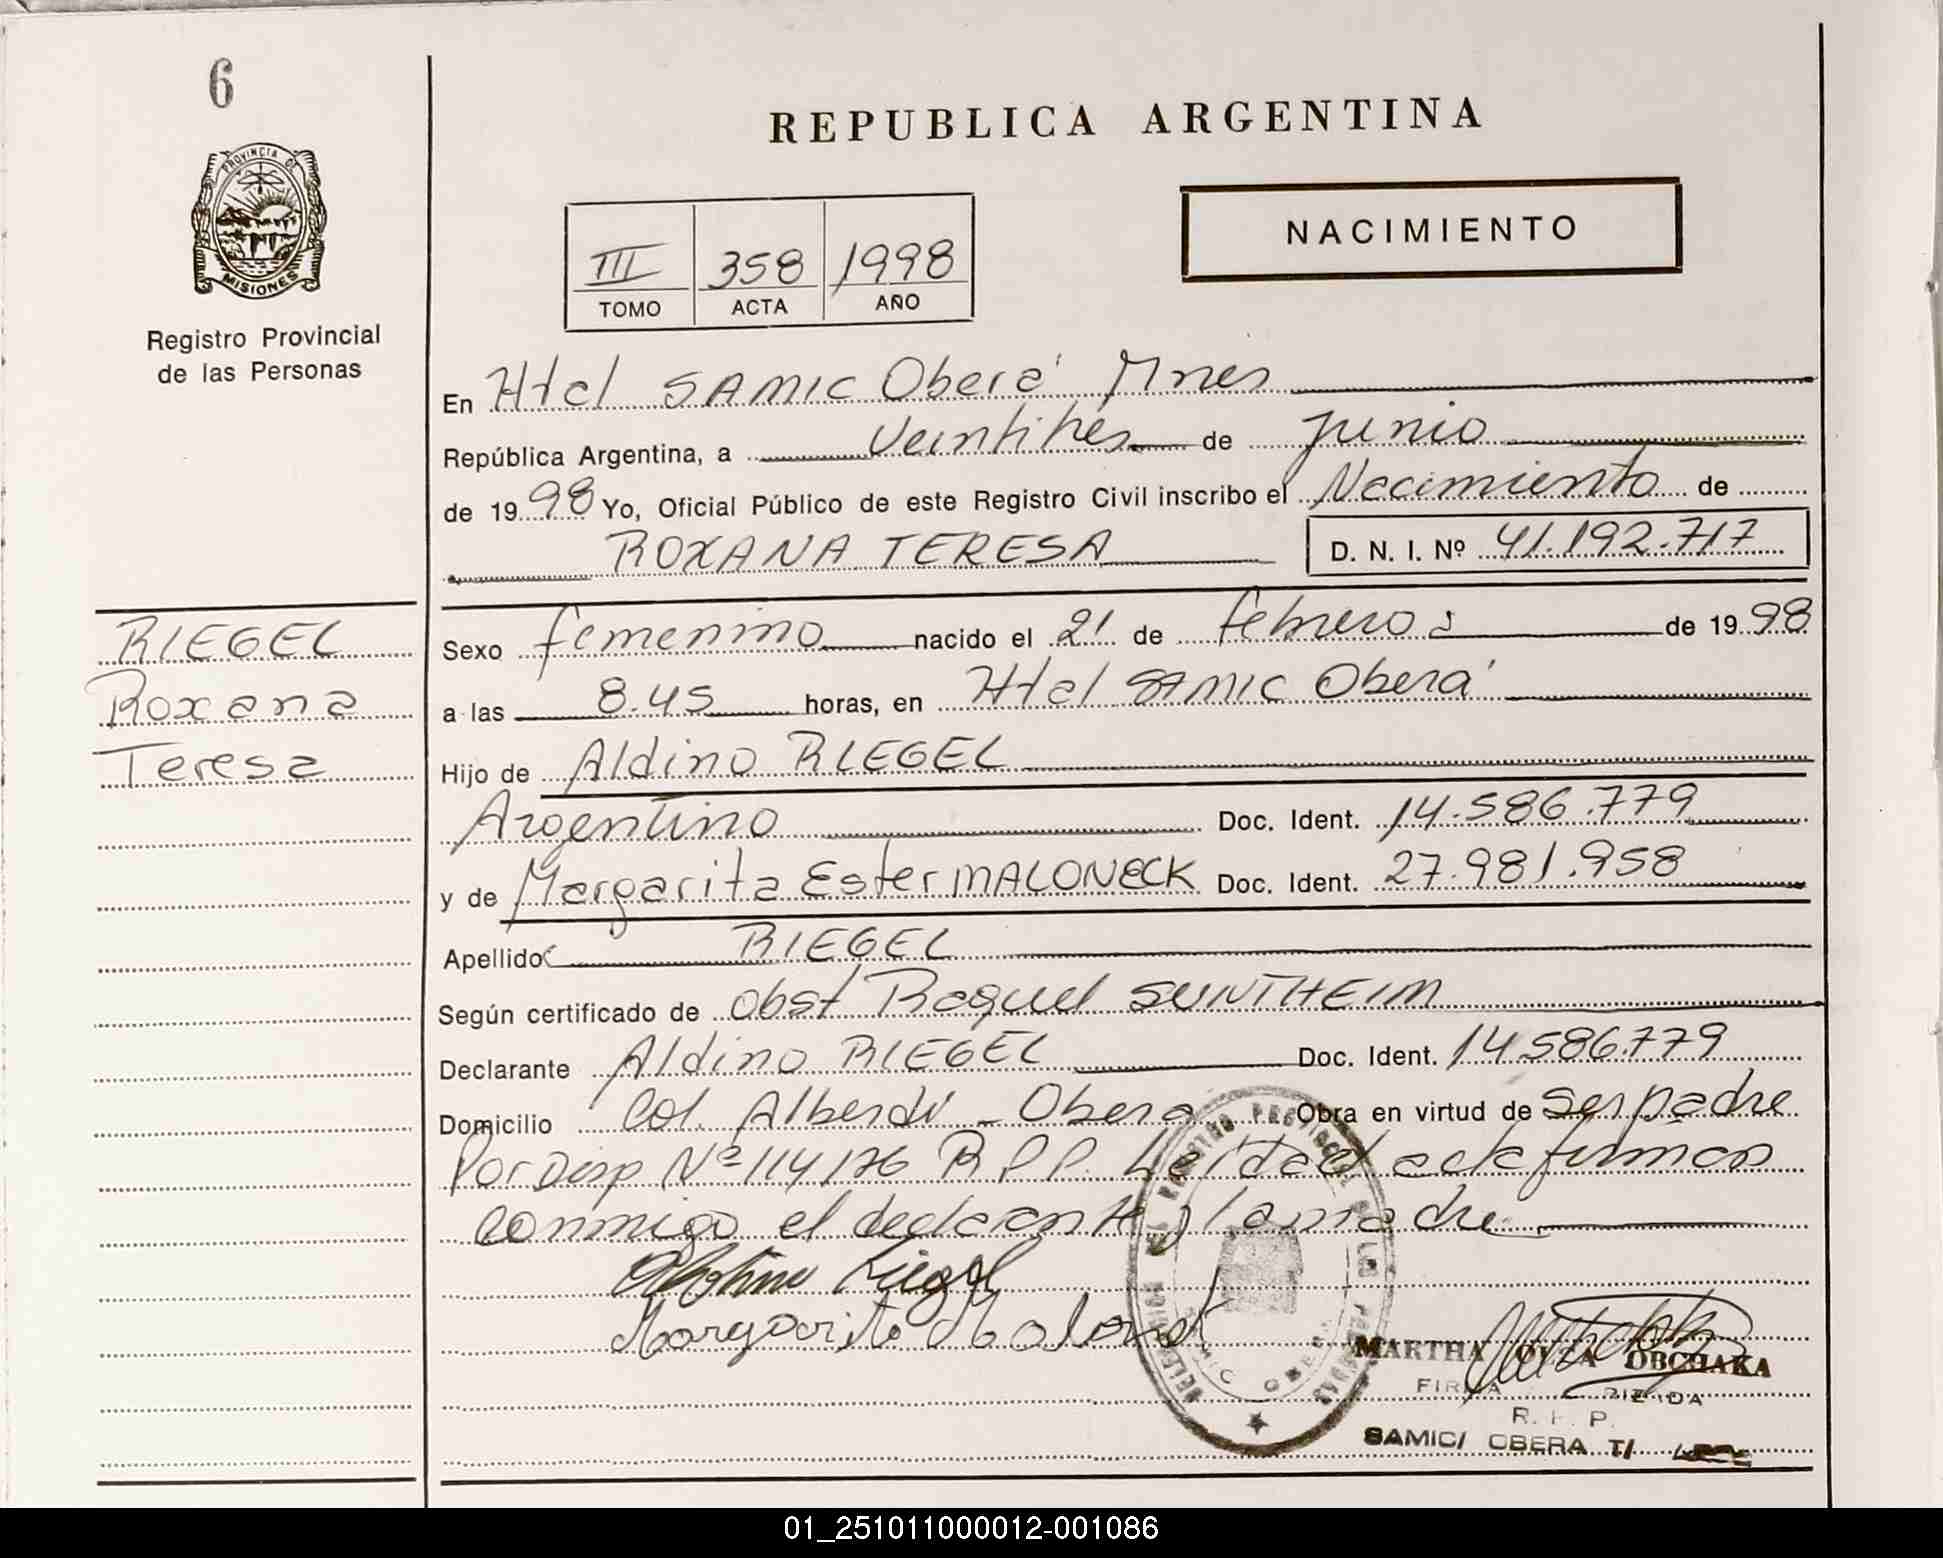 6
PROVINCIA DE
MISIONES
Registro Provincial
de las Personas
RIEGEL
Roxana
Teresa
REPUBLICA ARGENTINA
III 358 1998
TOMO ACTA AÑO
NACIMIENTO
En Htal SAMIC Oberá Mnes
República Argentina, a Veintitrés de junio
de 1998 Yo, Oficial Público de este Registro Civil inscribo el Nacimiento de
ROXANA TERESA D. N. I. Nº 41.192.717
Sexo femenino nacido el 21 de febrero de 1998
a las 8.45 horas, en Htal SAMIC Oberá
Hijo de Aldino RIEGEL
Argentino Doc. Ident. 14.586.779
y de Margarita Ester MALONECK Doc. Ident. 27.981.958
Apellido RIEGEL
Según certificado de Obst Raquel SUNTHEIM
Declarante Aldino RIEGEL Doc. Ident. 14.586.779
Domicilio Col. Alberdi - Obera Obra en virtud de ser padre
Por Disp Nº 114/76 R.P.P. Leída el acta firman
conmigo el declarante y la madre
Riegel
Margarita
MARTHA OLGA OBCHAKA
FIRMA
R. P. P.
SAMIC/ OBERA T/
01_251011000012-001086